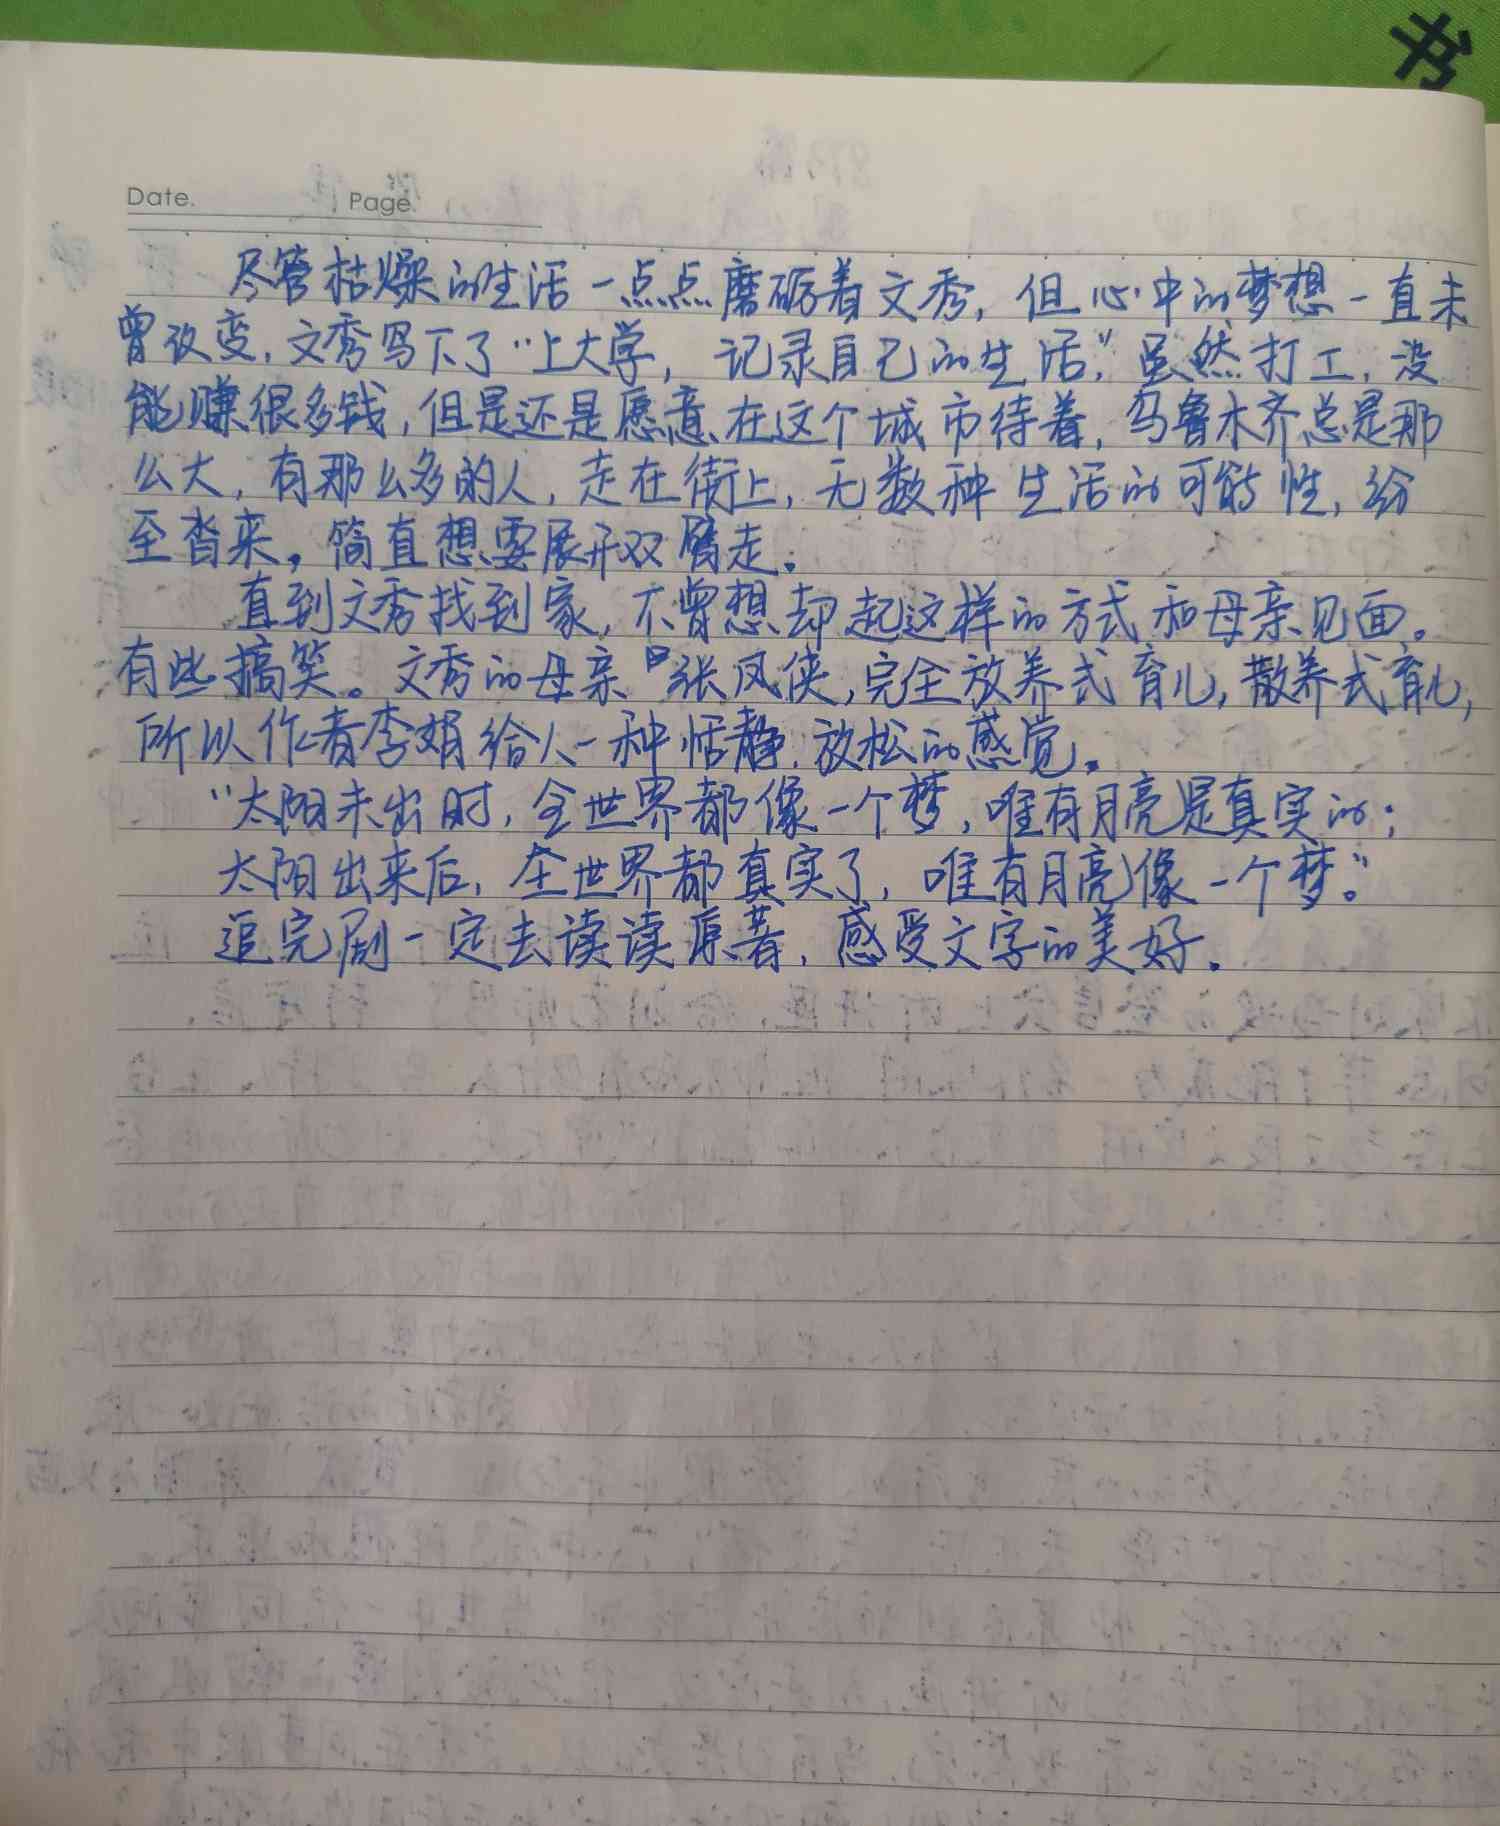 书
Date.
Page.
尽管枯燥的生活一点点磨砺着文秀，但心中的梦想一直未
曾改变，文秀写下了“上大学，记录自己的生活，”虽然打工，没
能赚很多钱，但是还是愿意在这个城市待着，乌鲁木齐总是那
么大，有那么多的人，走在街上，无数种生活的可能性，纷
至沓来，简直想要展开双臂走。
直到文秀找到家，不曾想却起这样的方式和母亲见面。
有些搞笑。文秀的母亲张凤侠，完全放养式育儿，散养式育儿，
所以作者李娟给人一种恬静，放松的感觉。
“太阳未出时，全世界都像一个梦，唯有月亮是真实的；
太阳出来后，全世界都真实了，唯有月亮像一个梦。”
追完剧一定去读读原著，感受文字的美好。